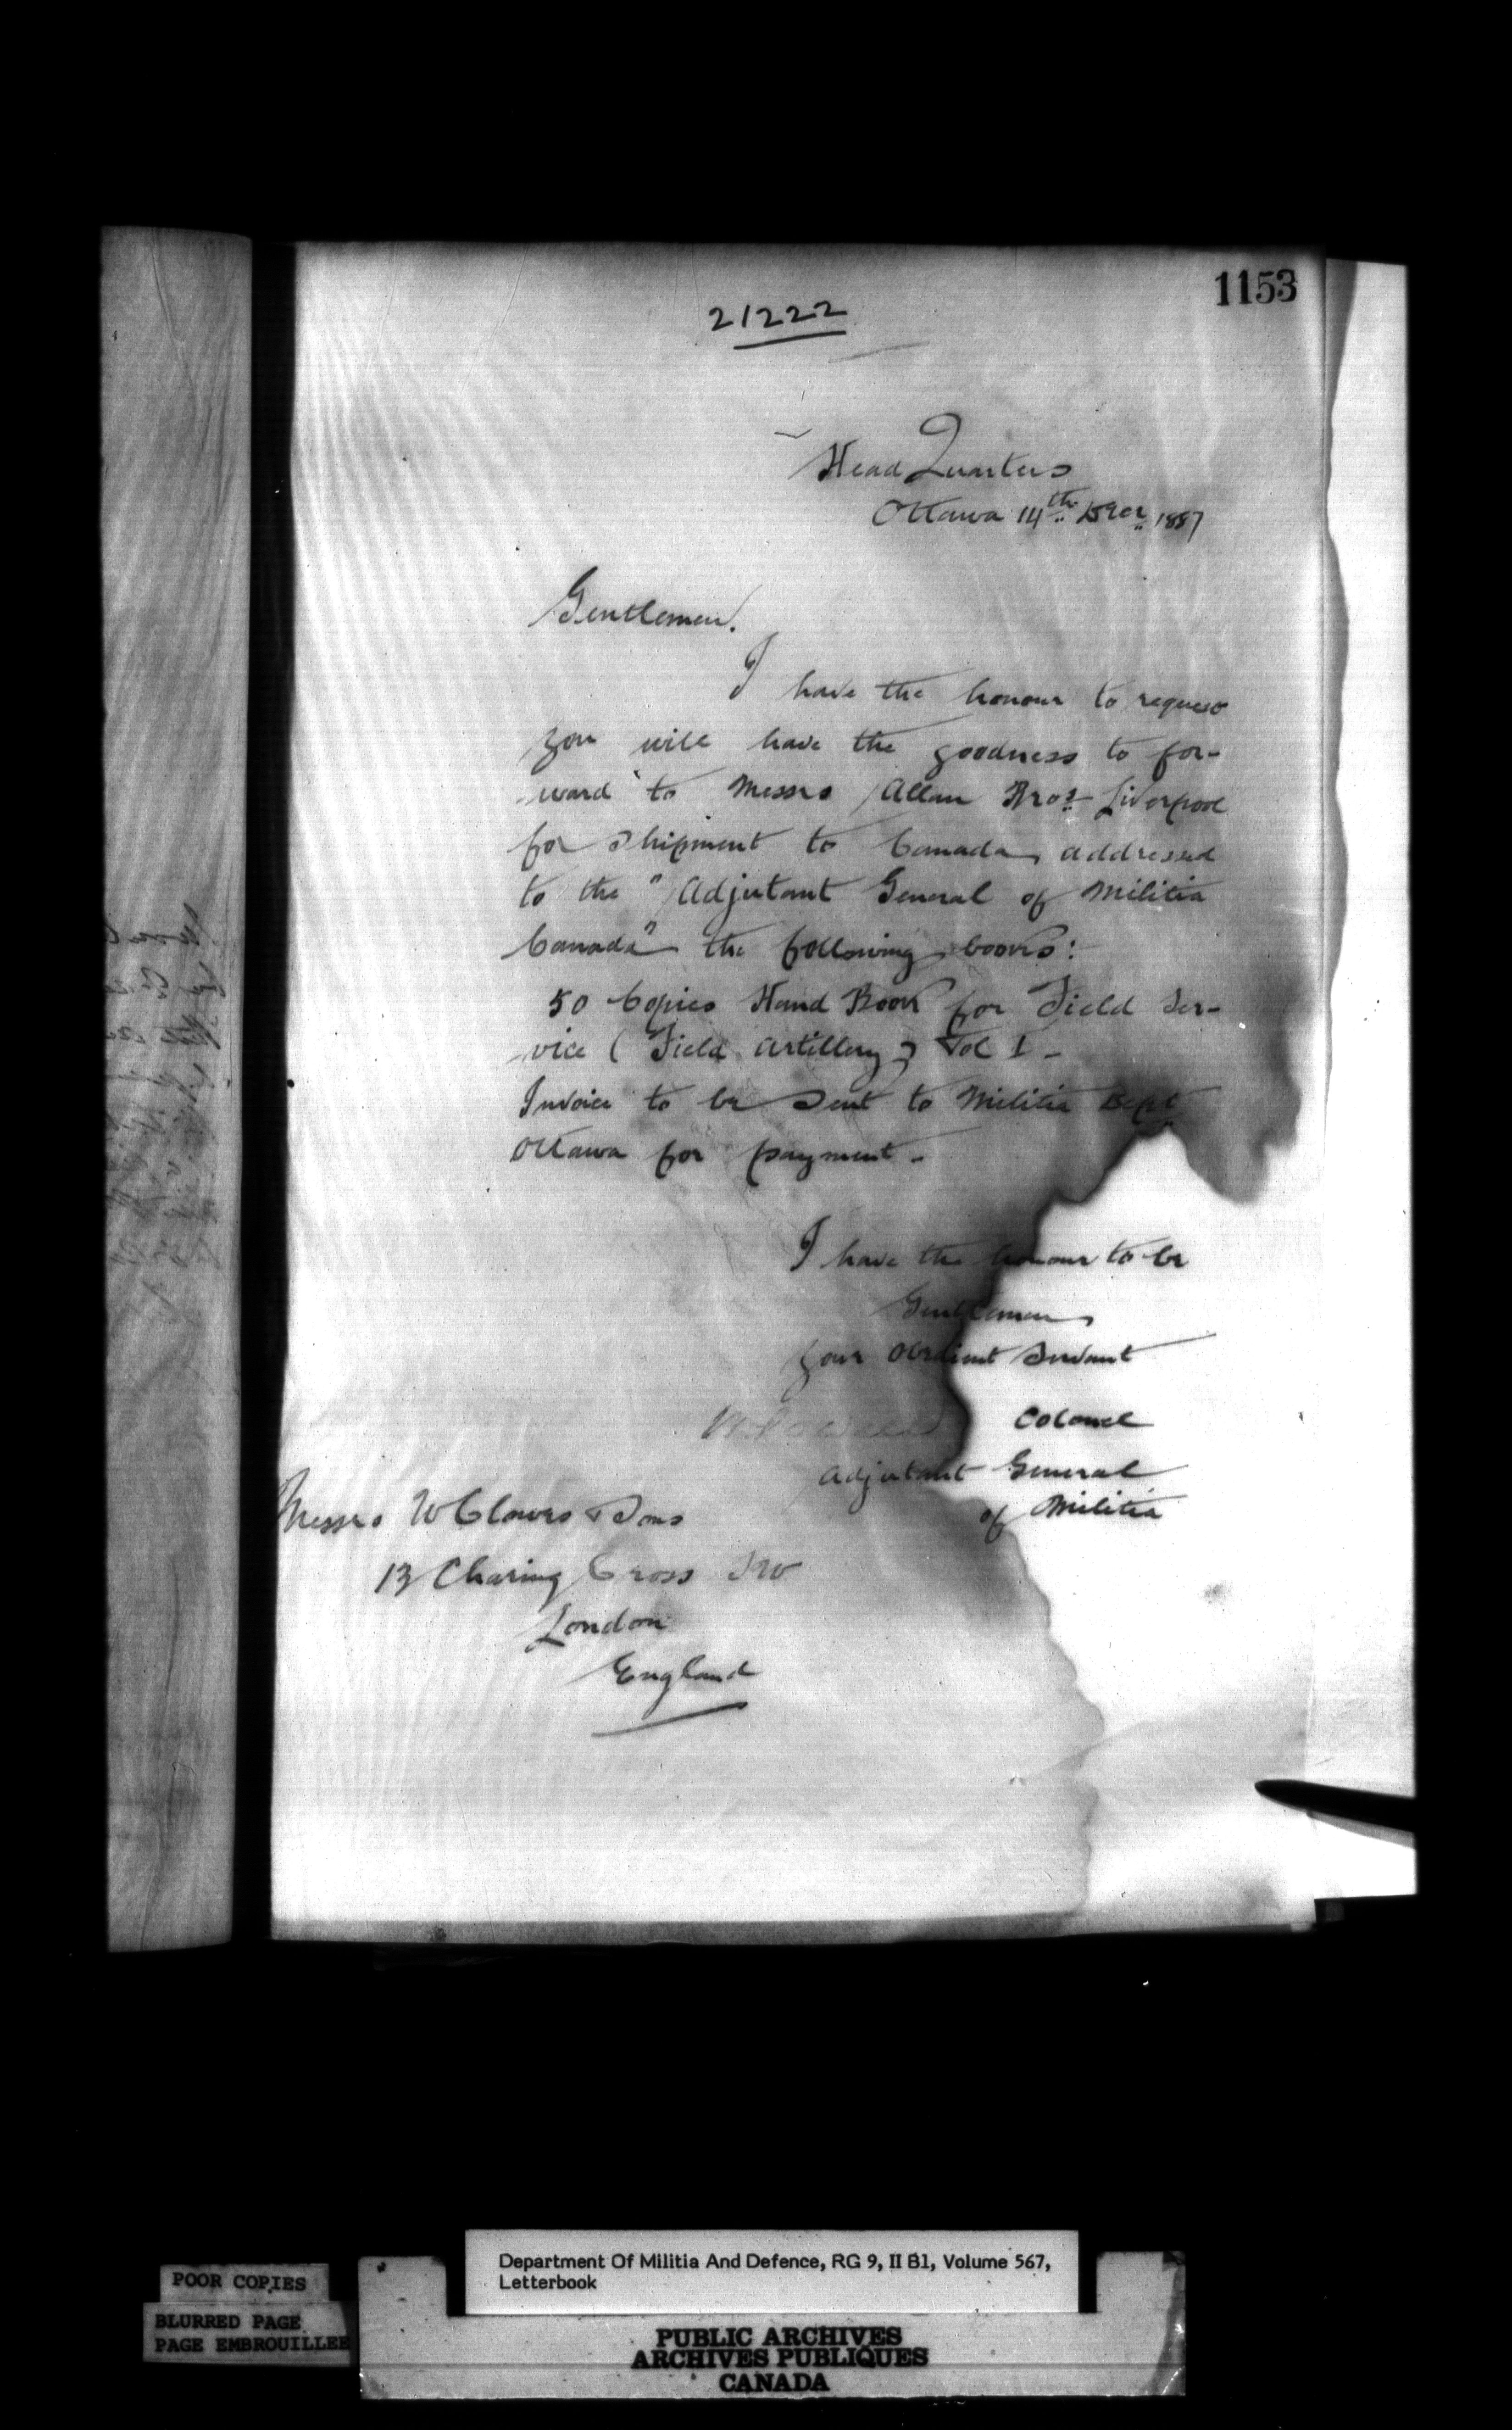 1153
21222
Head Quarters
Ottawa 14th Decr 1887
Gentlemen.
I have the honour to request
you will have the goodness to for-
ward to Messrs Allan Bros Liverpool
for shipment to Canada, addressed
to the "Adjutant General of Militia
Canada" the following books:
50 Copies Hand Book for Field Ser-
vice (Field Artillery) Vol I -
Invoice to be sent to Militia Dept
Ottawa for payment -
I have the honour to be
Gentlemen
your obedient servant
Colonel
Adjutant General
of Militia
Messrs W Clowes & Sons
13 Charing Cross SW
London
England
Department Of Militia And Defence, RG 9, II B1, Volume 567,
Letterbook
POOR COPIES
BLURRED PAGE
PAGE EMBROUILLEE
PUBLIC ARCHIVES
ARCHIVES PUBLIQUES
CANADA